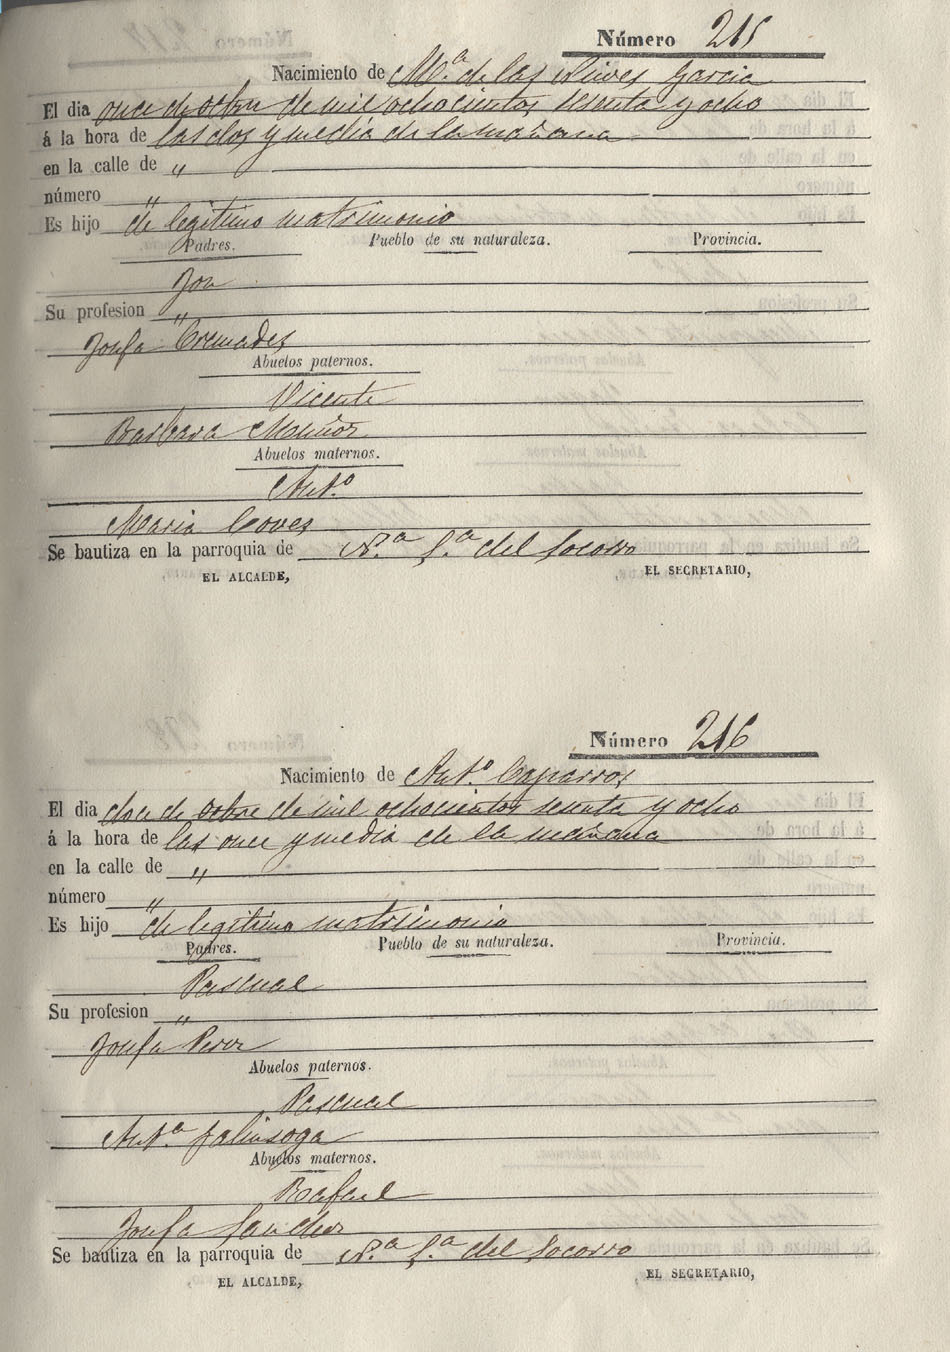 Número 215
Nacimiento de M.ª de las Nieves Garcia
El dia once de octbre de mil ochocientos sesenta y ocho
á la hora de las dos y media de la mañana
en la calle de "
número "
Es hijo de legitimo matrimonio
Padres. Pueblo de su naturaleza. Provincia.
Jose
Su profesion "
Josefa Cremades
Abuelos paternos.
Vicente
Barbara Muñoz
Abuelos maternos.
Ant.º
Maria Coves
Se bautiza en la parroquia de N.ª S.ª del Socorro
EL ALCALDE, EL SECRETARIO,
Número 216
Nacimiento de Ant.º Caparros
El dia doce de octbre de mil ochocientos sesenta y ocho
á la hora de las once y media de la mañana
en la calle de "
número "
Es hijo de legitimo matrimonio
Padres. Pueblo de su naturaleza. Provincia.
Pascual
Su profesion "
Josefa Perez
Abuelos paternos.
Pascual
Ant.ª Galinsoga
Abuelos maternos.
Rafael
Josefa Sanchez
Se bautiza en la parroquia de N.ª S.ª del Socorro
EL ALCALDE, EL SECRETARIO,